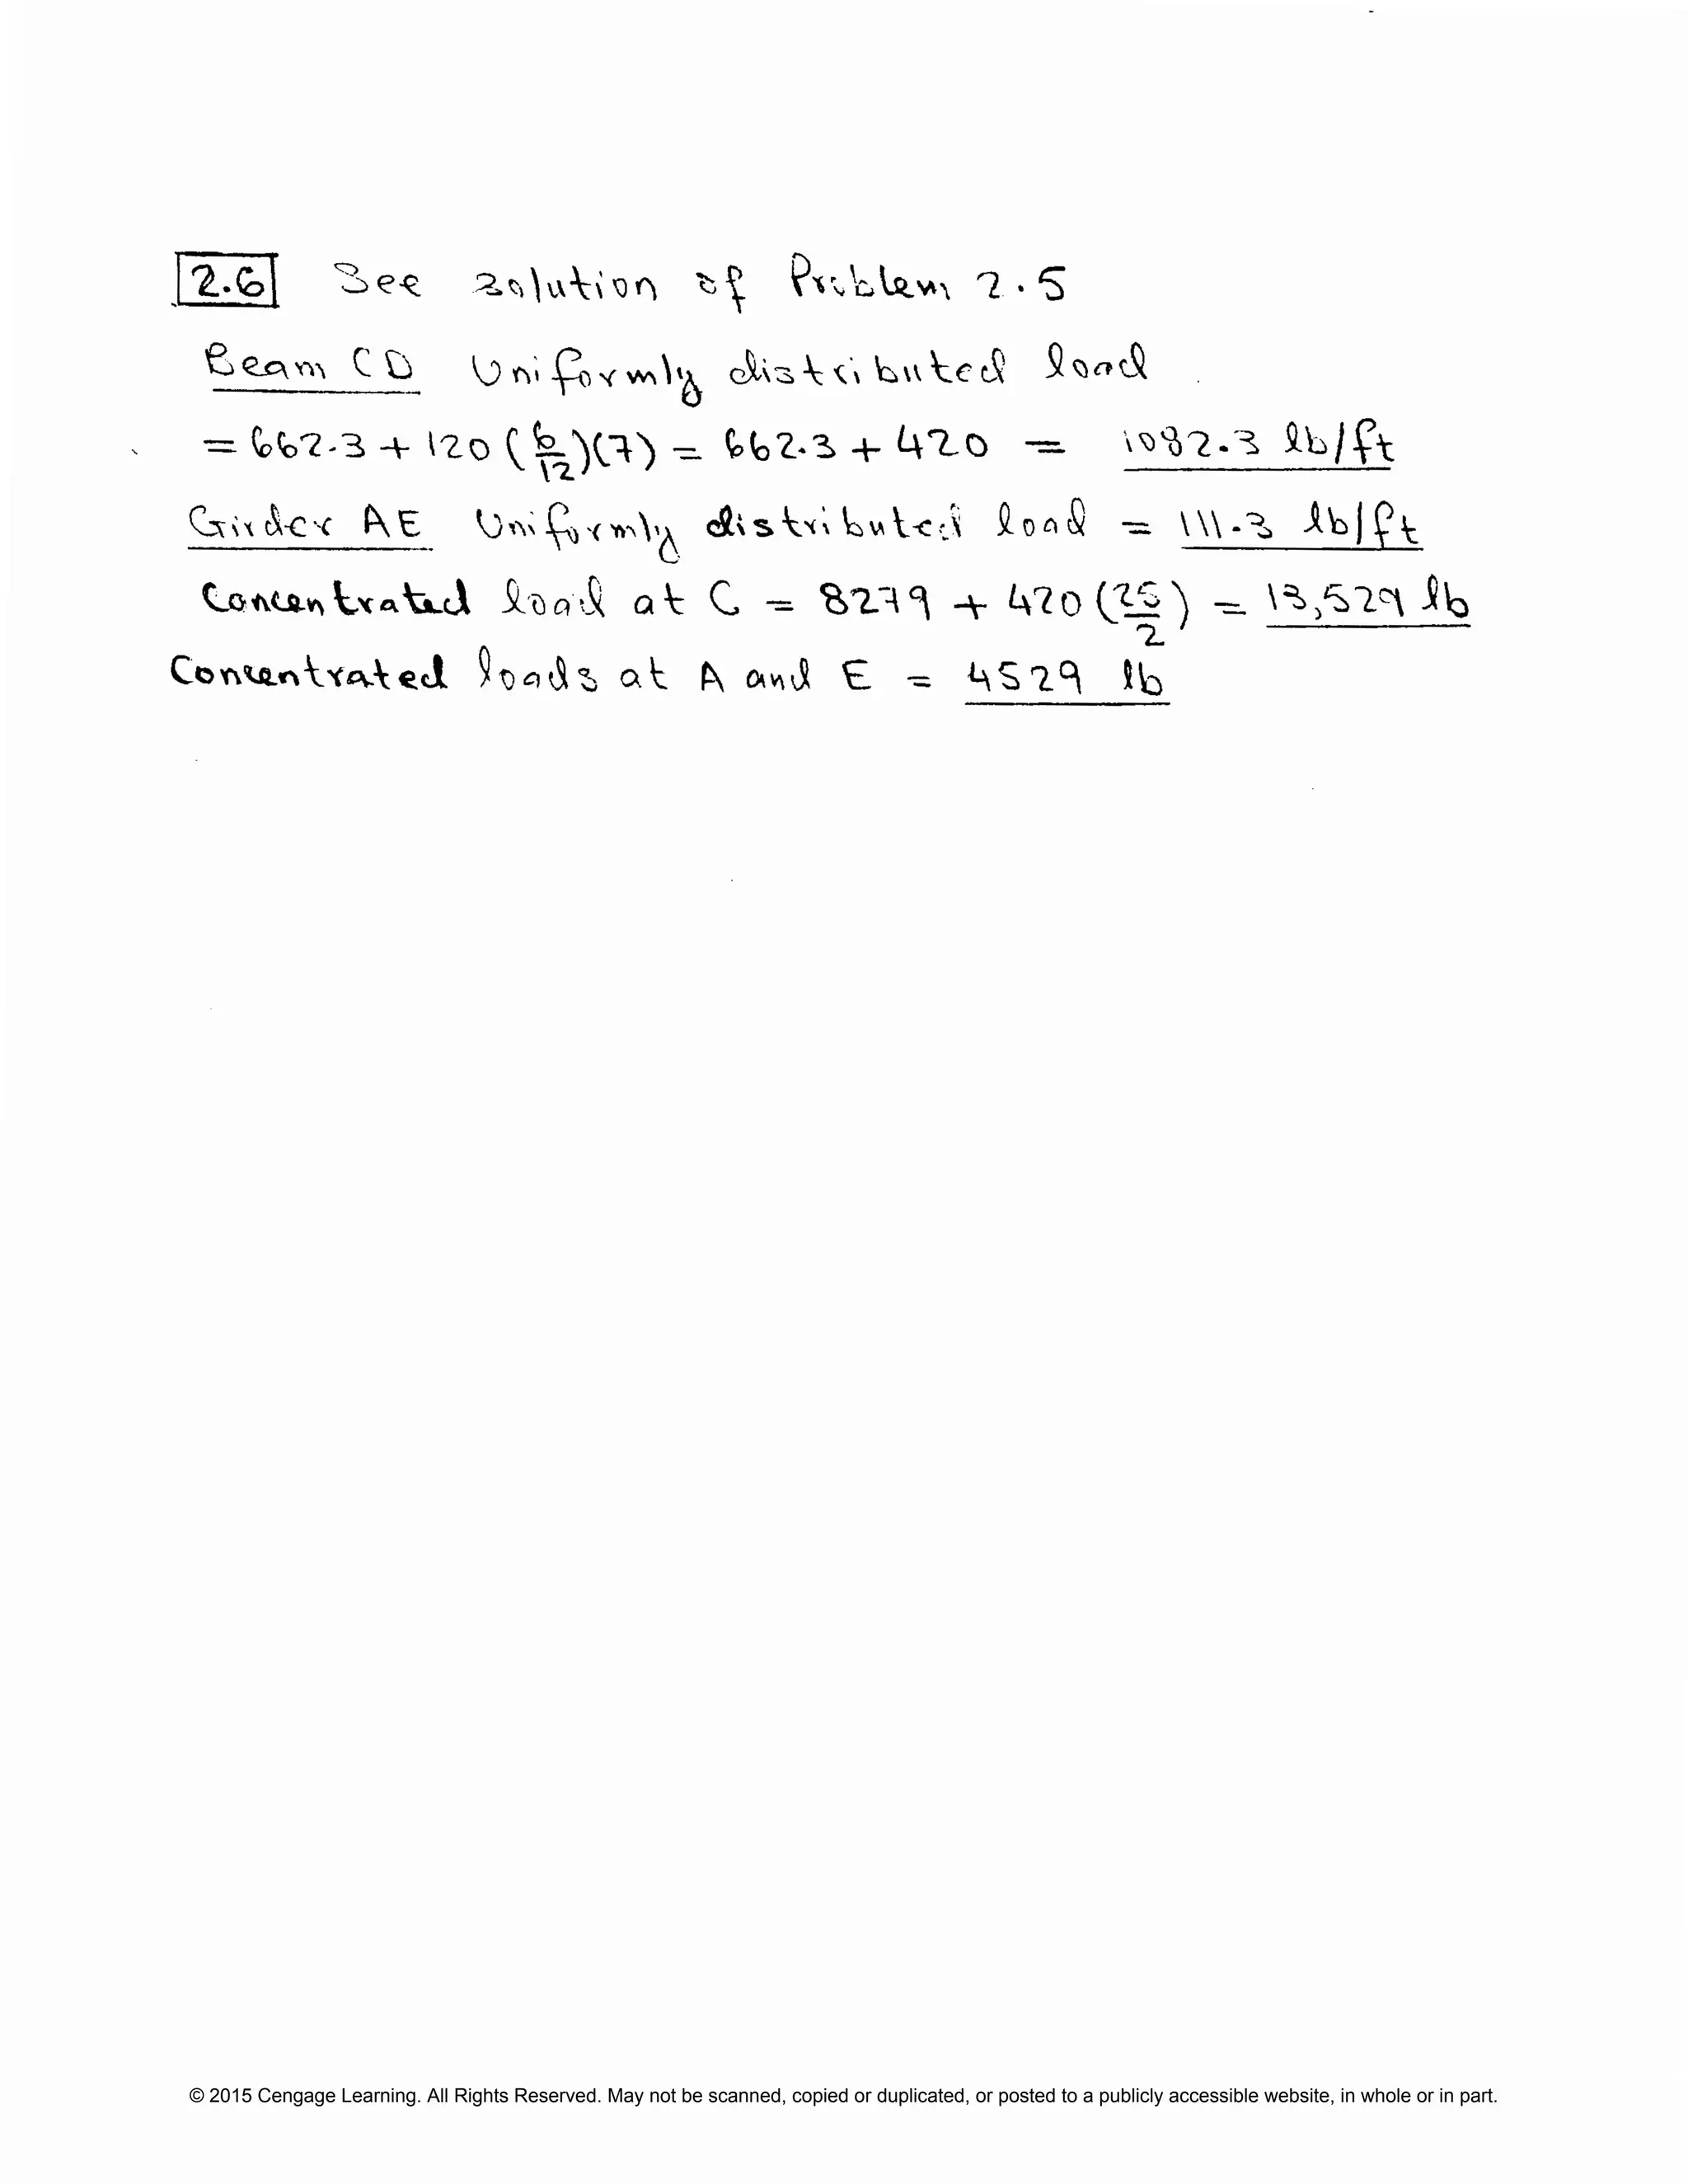 2.6 See solution of Problem 2.5
Beam CD Uniformly distributed load
= 662.3 + 120 (6/12)(7) = 662.3 + 420 = 1082.3 lb/ft
Girder AE Uniformly distributed load = 111.3 lb/ft
Concentrated load at C = 8279 + 420 (25/2) = 13,529 lb
Concentrated loads at A and E = 4529 lb
© 2015 Cengage Learning. All Rights Reserved. May not be scanned, copied or duplicated, or posted to a publicly accessible website, in whole or in part.